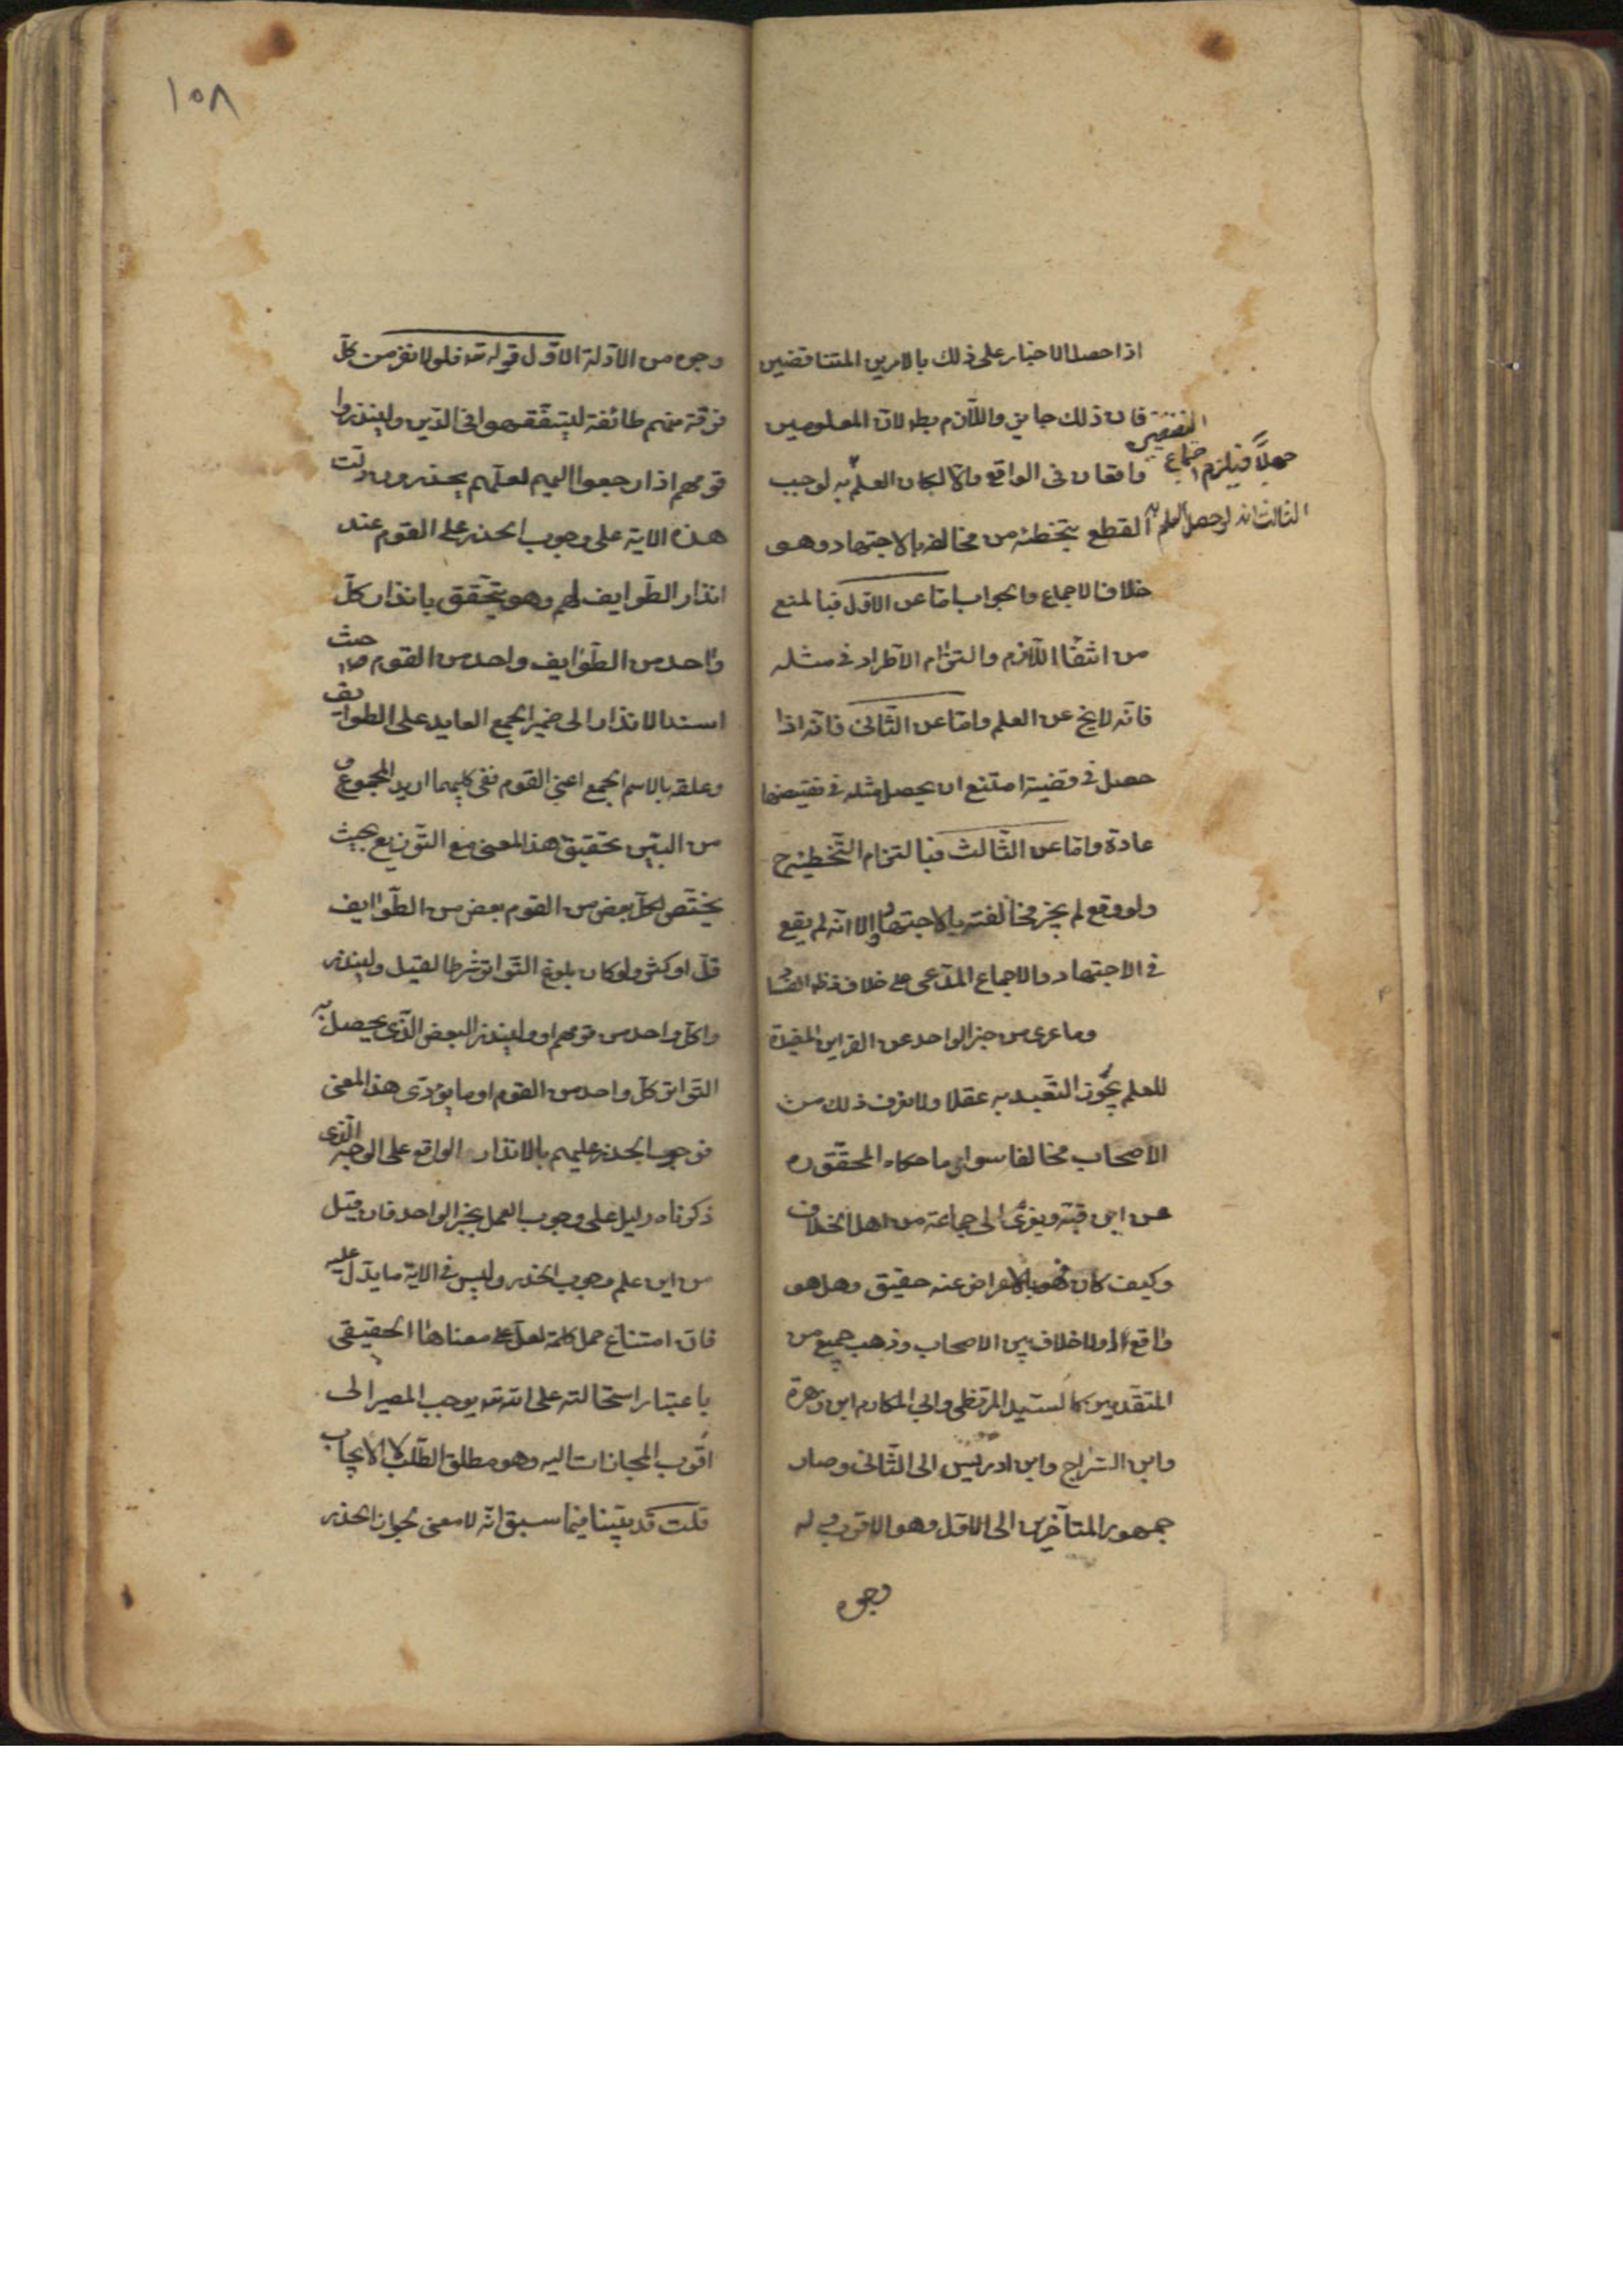 اذا حصل الاخبار على ذلك بالامرين المتناقضين
فان ذلك جايز واللازم بط لان المعلومين
واقعان فى الواقع والا لكان العلم به لوجب
جهلا فيلزم اجتماع النقيضين
الثالث انه لو حصل العلم به
القطع بتخطئه من مخالفه بالاجتهاد وهو
خلاف الاجماع والجواب اما عن الاول فبالمنع
من انتفا اللازم والتزام الاطراد فى مثله
فانه لا يخ عن العلم واما عن الثانى فانه اذا
حصل فى قضية امتنع ان يحصل مثله فى نقيضها
عادة واما عن الثالث فبالتزام التخطئة ح
ولو وقع لم يجز مخالفته بالاجتهاد الا انه لم يقع
فى الاجتهاد والاجماع المدعى على خلاف ذلك ظ الفساد
وما عرى من خبر الواحد عن القراين المفيدة
للعلم يجوز التعبد به عقلا ولا نعرف ذلك من
الاصحاب مخالفا سوى ما حكاه المحقق ره
عن ابن قبة ويعزى الى جماعة من اهل الخلاف
وكيف كان فهو بالاعراض عنه حقيق وهل هو
واقع او لا خلاف بين الاصحاب وذهب جميع من
المتقدمين كالسيد المرتضى وابى المكارم ابن زهرة
وابن السراج وابن ادريس الى الثانى وصار
جمهور المتاخرين الى الاول وهو الاقرب وله
وجوه
١٥٨
وجوه من الادلة الاول قوله تعه فلولا نفر من كل
فرقة منهم طائفة ليتفقهوا فى الدين ولينذروا
قومهم اذا رجعوا اليهم لعلهم يحذرون دلت
هذه الاية على وجوب الحذر على القوم عند
انذار الطوايف لهم وهو يتحقق بانذار كل
واحد من الطوايف واحد من القوم حيث
اسند الانذار الى ضمير الجمع العايد على الطوايف
وعلقه بالاسم الجمع اعنى القوم ففى كليهما اريد المجموع و
من البين تحقيق هذا المعنى مع التوزيع بحيث
يختص لكل بعض من القوم بعض من الطوايف
قل او كثر ولو كان بلوغ التواتر شرطا لقيل ولينذر
وا كل واحد من قومهم او ولينذر البعض الذى يحصل به
التواتر كل واحد من القوم او ما يودى هذا المعنى
فوجوب الحذر عليهم بالانذار الواقع على الوجه الذى
ذكرناه دليل على وجوب العمل بخبر الواحد فان قيل
من اين علم وجوب الحذر وليس فى الاية ما يدل عليه
فان امتناع حمل كلمة لعل على معناها الحقيقى
باعتبار استحالته على الله تعه يوجب المصير الى
اقرب المجازات اليه وهو مطلق الطلب لا الايجاب
قلت قد بينا فيما سبق انه لا معنى لجواز الحذر